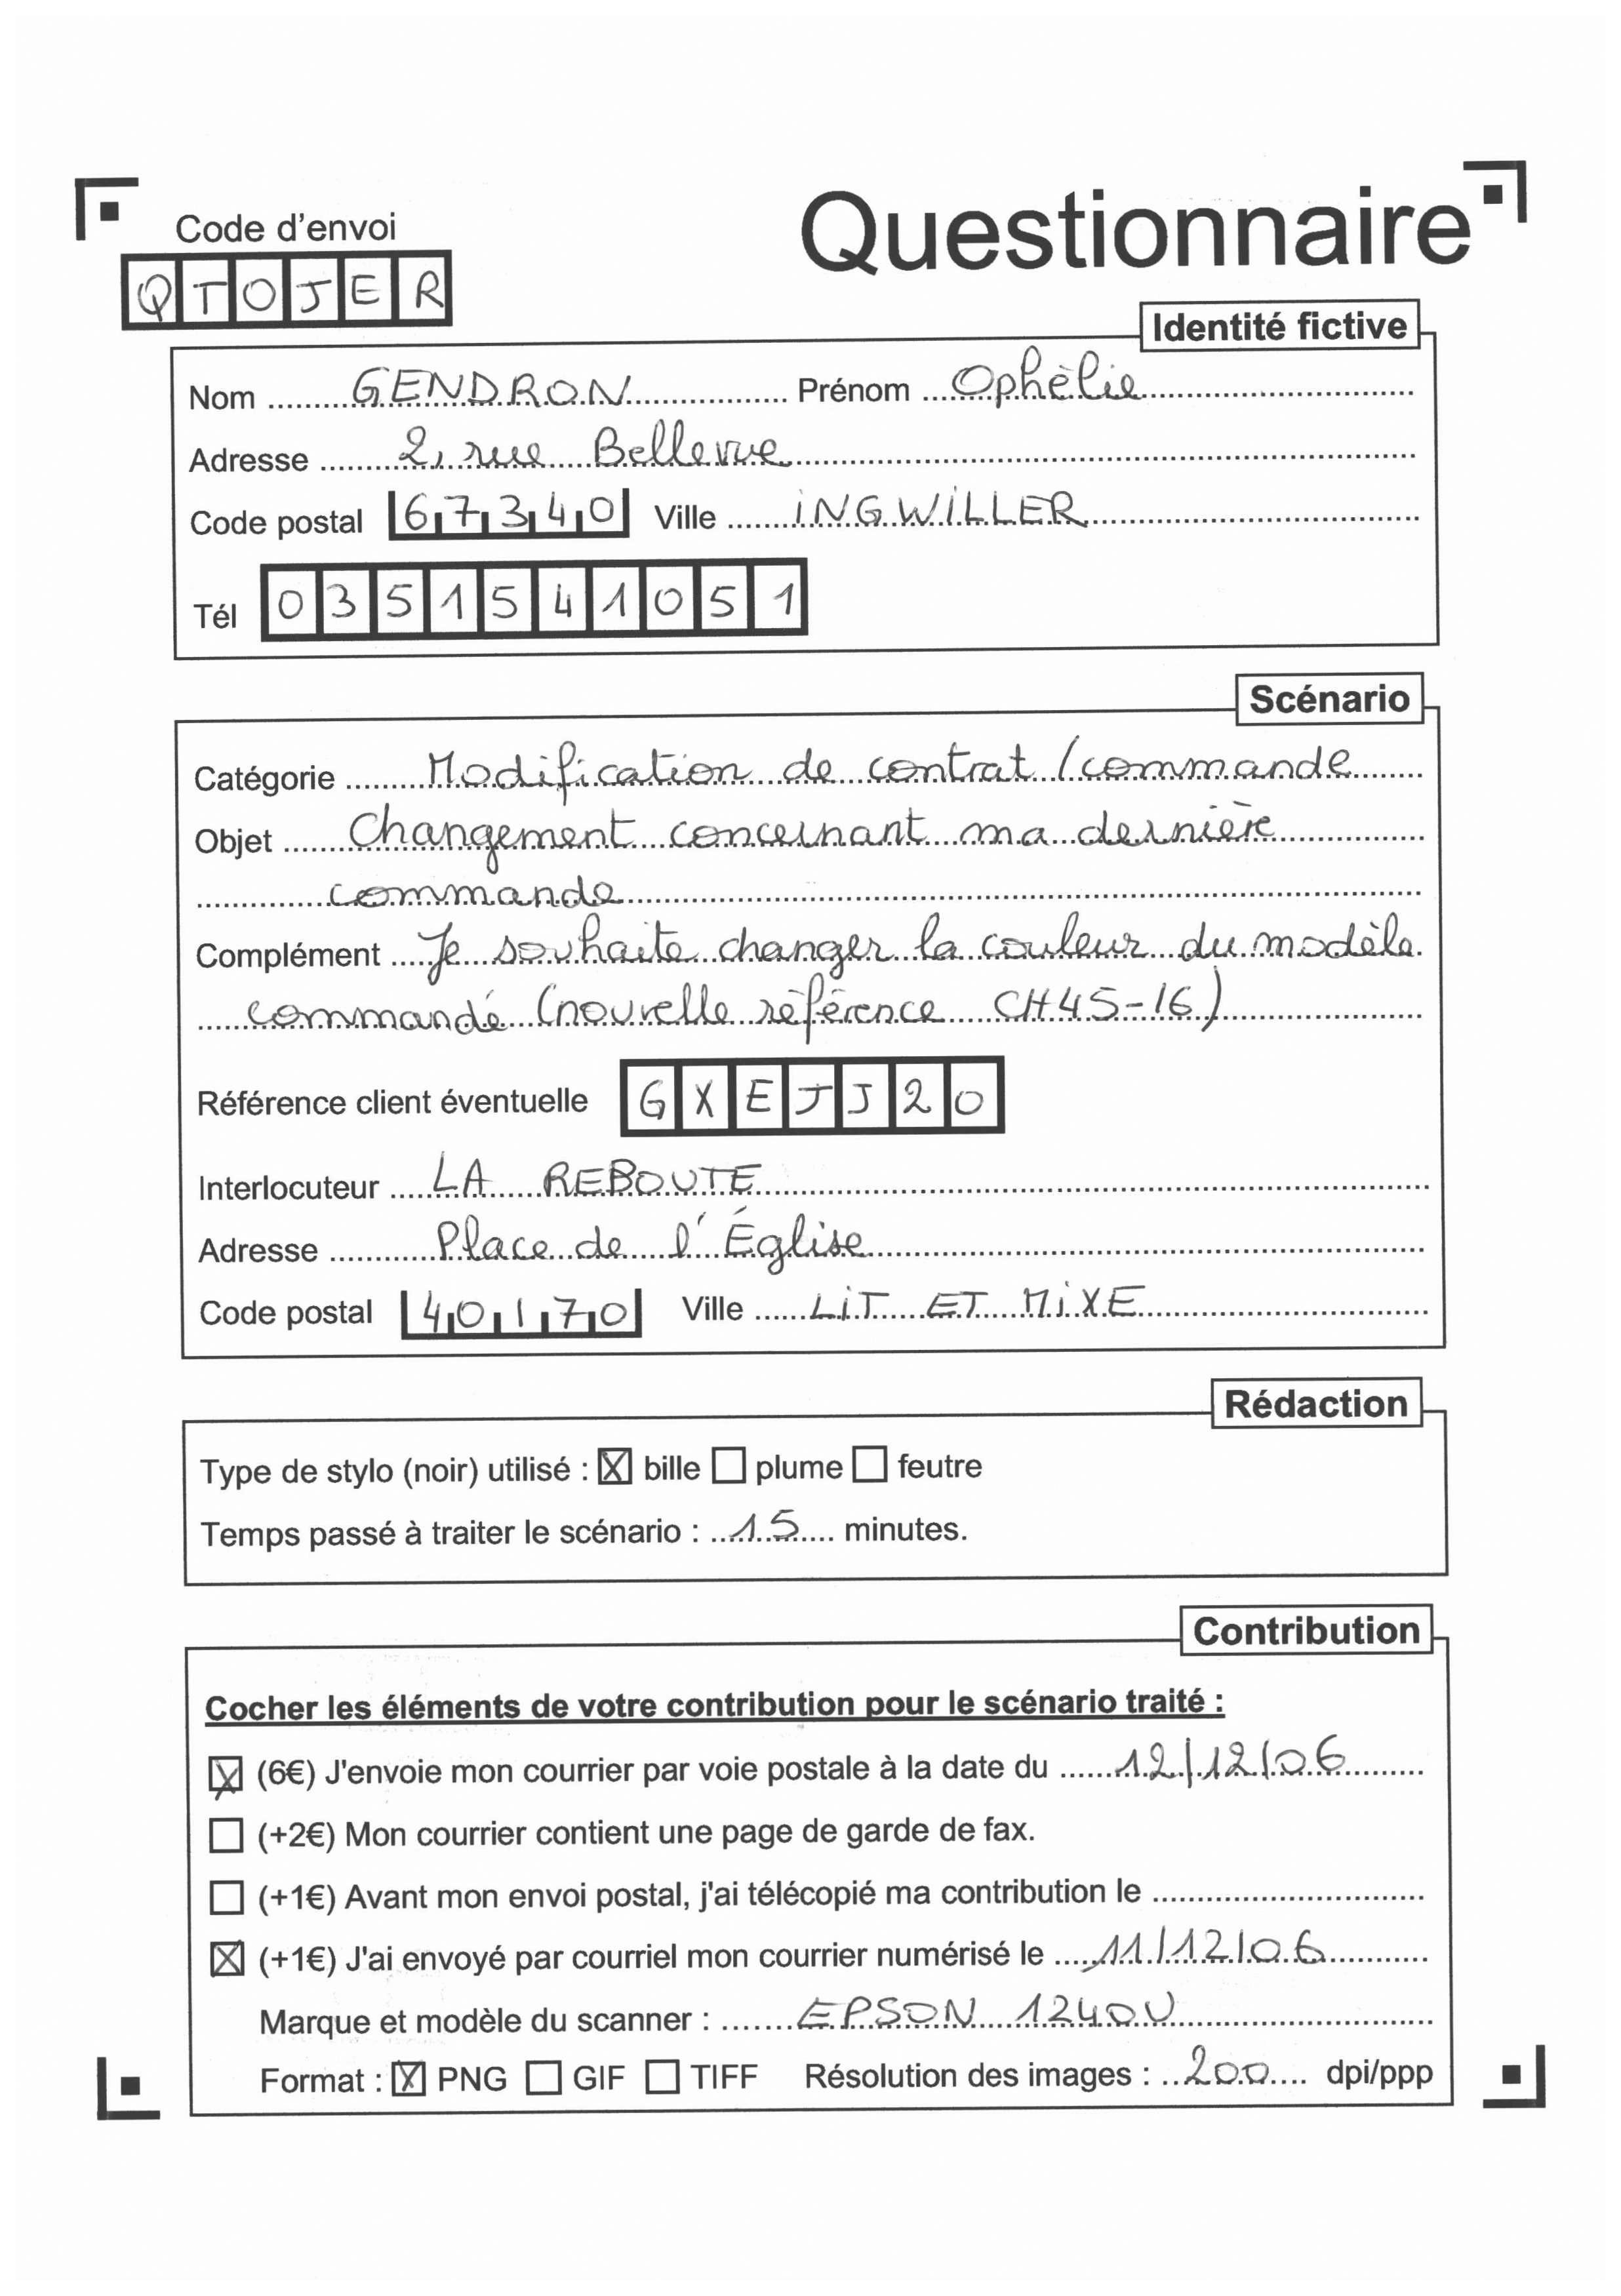 Questionnaire
Code d'envoi
QTOJER
Identité fictive
Nom GENDRON Prénom Ophélie
Adresse 2, rue Bellevue
Code postal 67340 Ville INGWILLER
Tél 0351541051
Scénario
Catégorie Modification de contrat / commande
Objet Changement concernant ma dernière
commande
Complément Je souhaite changer la couleur du modèle
commandé (nouvelle référence CH45-16)
Référence client éventuelle GXEJJ20
Interlocuteur LA REBOUTE
Adresse Place de l'Église
Code postal 40170 Ville LIT ET MIXE
Rédaction
Type de stylo (noir) utilisé : ☒ bille ☐ plume ☐ feutre
Temps passé à traiter le scénario : 15 minutes.
Contribution
Cocher les éléments de votre contribution pour le scénario traité :
☒ (6€) J'envoie mon courrier par voie postale à la date du 12/12/06
☐ (+2€) Mon courrier contient une page de garde de fax.
☐ (+1€) Avant mon envoi postal, j'ai télécopié ma contribution le
☒ (+1€) J'ai envoyé par courriel mon courrier numérisé le 11/12/06
Marque et modèle du scanner : EPSON 1240U
Format : ☒ PNG ☐ GIF ☐ TIFF Résolution des images : 200 dpi/ppp